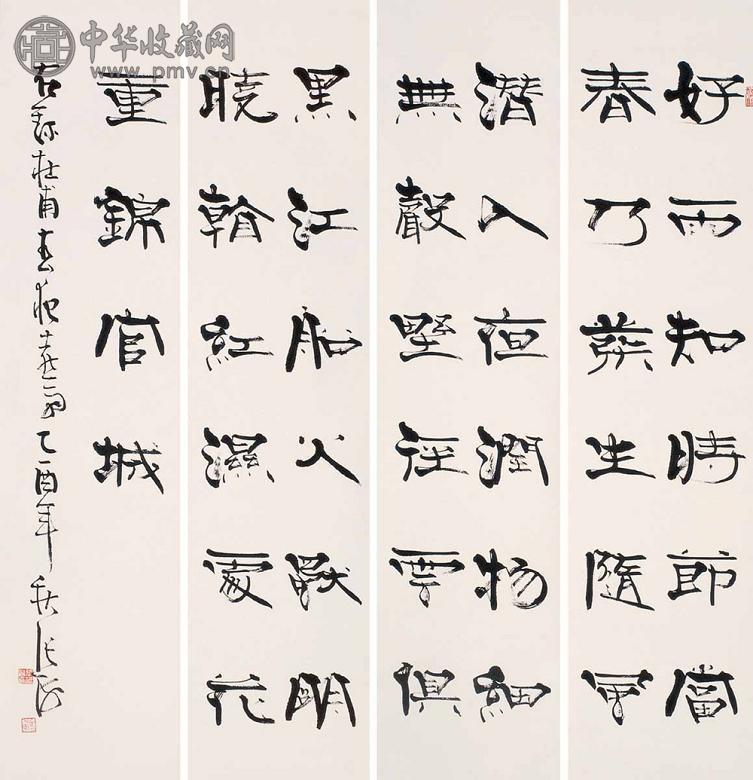 中华收藏网
www.pmv.cn
好雨知時節當
春乃發生隨風
潛入夜潤物細
無聲野徑雲俱
黑江船火獨明
曉看紅濕處花
重錦官城
右録杜甫春夜喜雨乙酉年秋張海